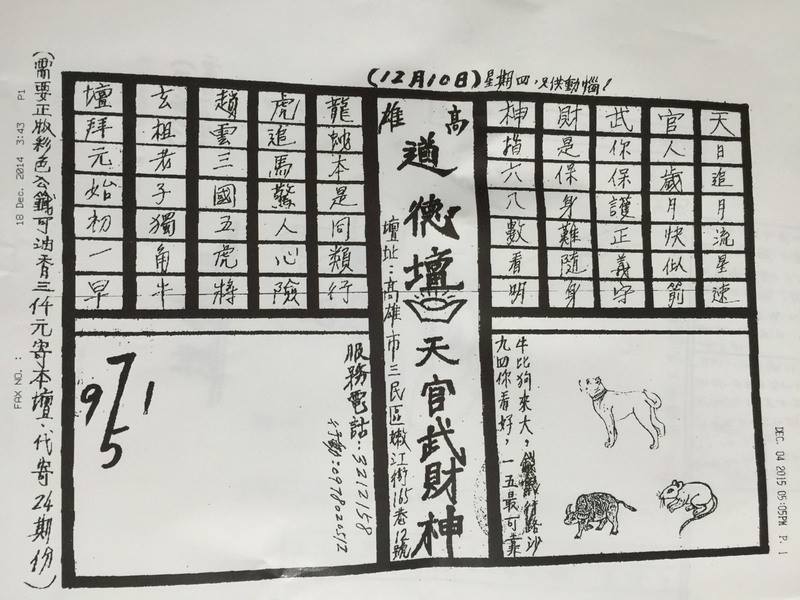 (12月10日)星期四,
天日追月流星速
官人歲月快似箭
武你保護正義守
財是保身難隨身
神指六八數看明
高雄
道德壇
天官武財神
壇址:高雄市三民區嫩江街165巷12號
龍蛇本是同類行
虎追馬驚人心險
趙雲三國五虎將
玄祖老子獨角牛
壇拜元始初一早
牛比狗來大,
九四你看好,一五最可靠
服務電話:3212158
行動:0970020512
7
9 1
5
(需要正版彩色公籤可油香三仟元寄本壇.代寄24期份)
FAX NO. :
18 Dec. 2014 3:43 P1
DEC. 04 2015 05:05PM P. 1